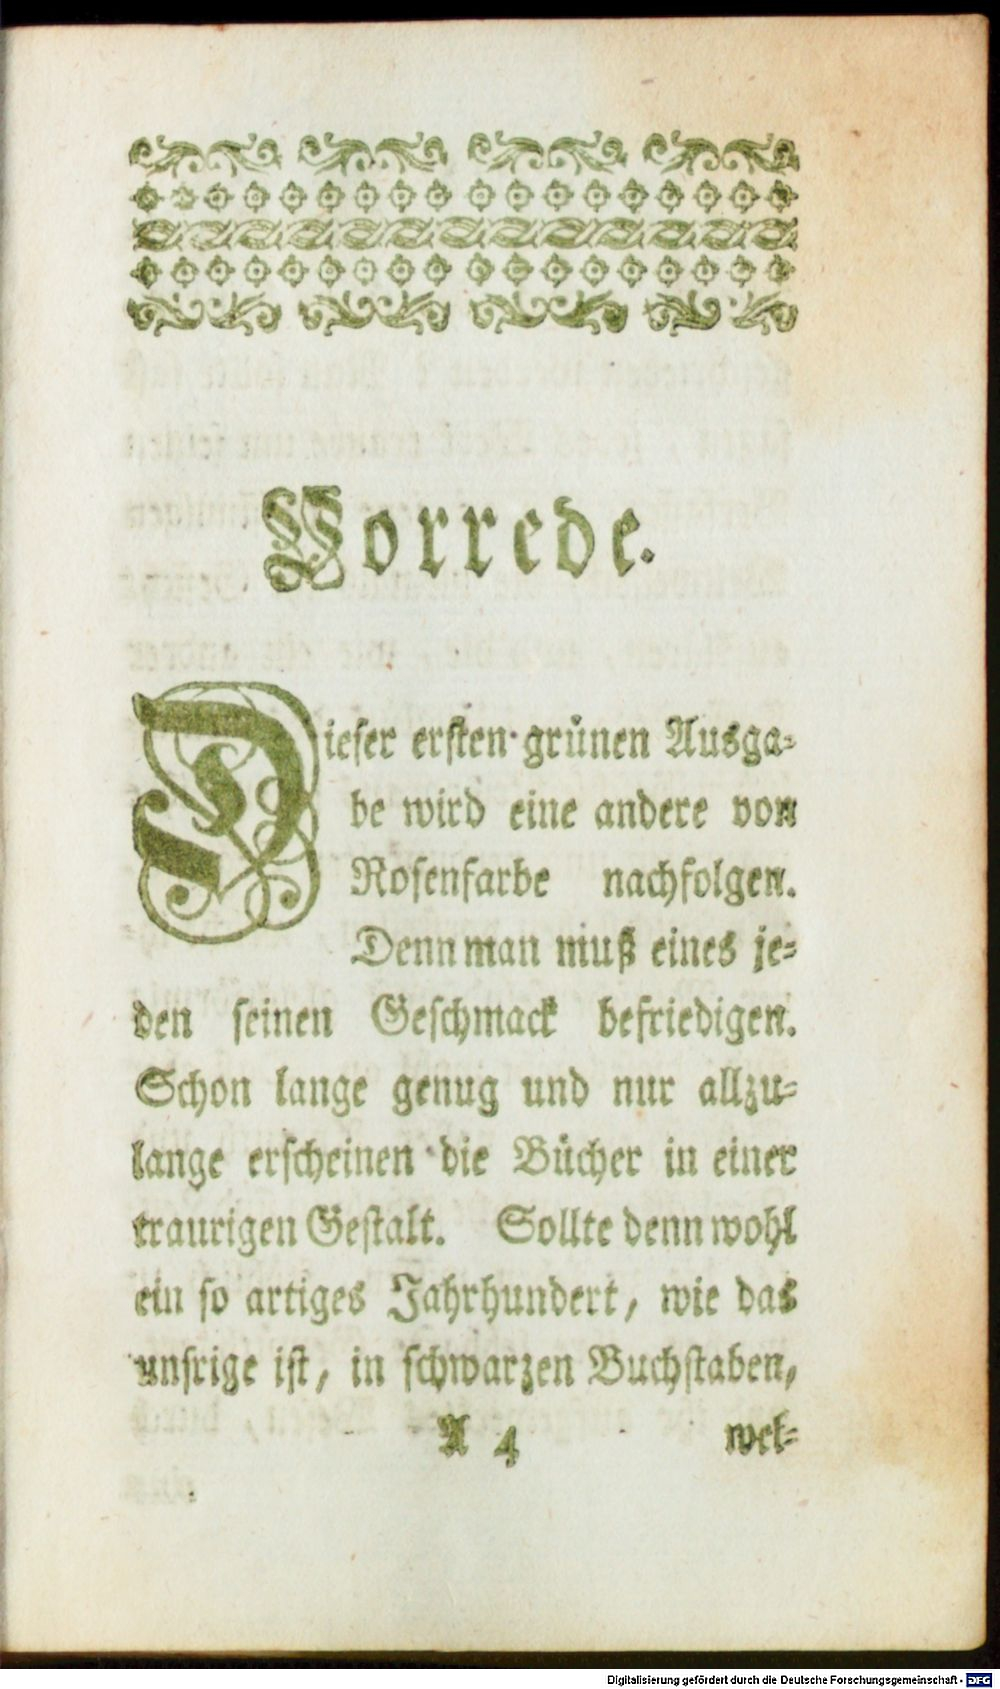 Vorrede.
Dieser ersten grünen Ausga-
be wird eine andere von
Rosenfarbe nachfolgen.
Denn man muß eines je-
den seinen Geschmack befriedigen.
Schon lange genug und nur allzu-
lange erscheinen die Bücher in einer
traurigen Gestalt. Sollte denn wohl
ein so artiges Jahrhundert, wie das
unsrige ist, in schwarzen Buchstaben,
A 4 wel-
Digitalisierung gefördert durch die Deutsche Forschungsgemeinschaft - DFG